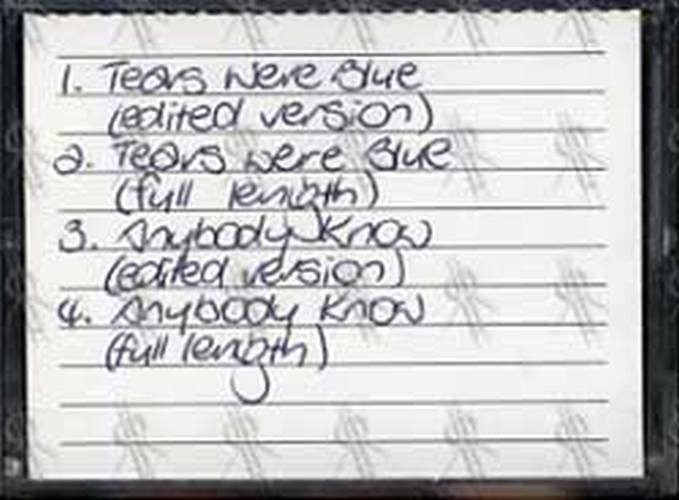 1. Tears Were Blue
(edited version)
2. Tears were Blue
(full length)
3. Anybody Know
(edited version)
4. Anybody Know
(full length)